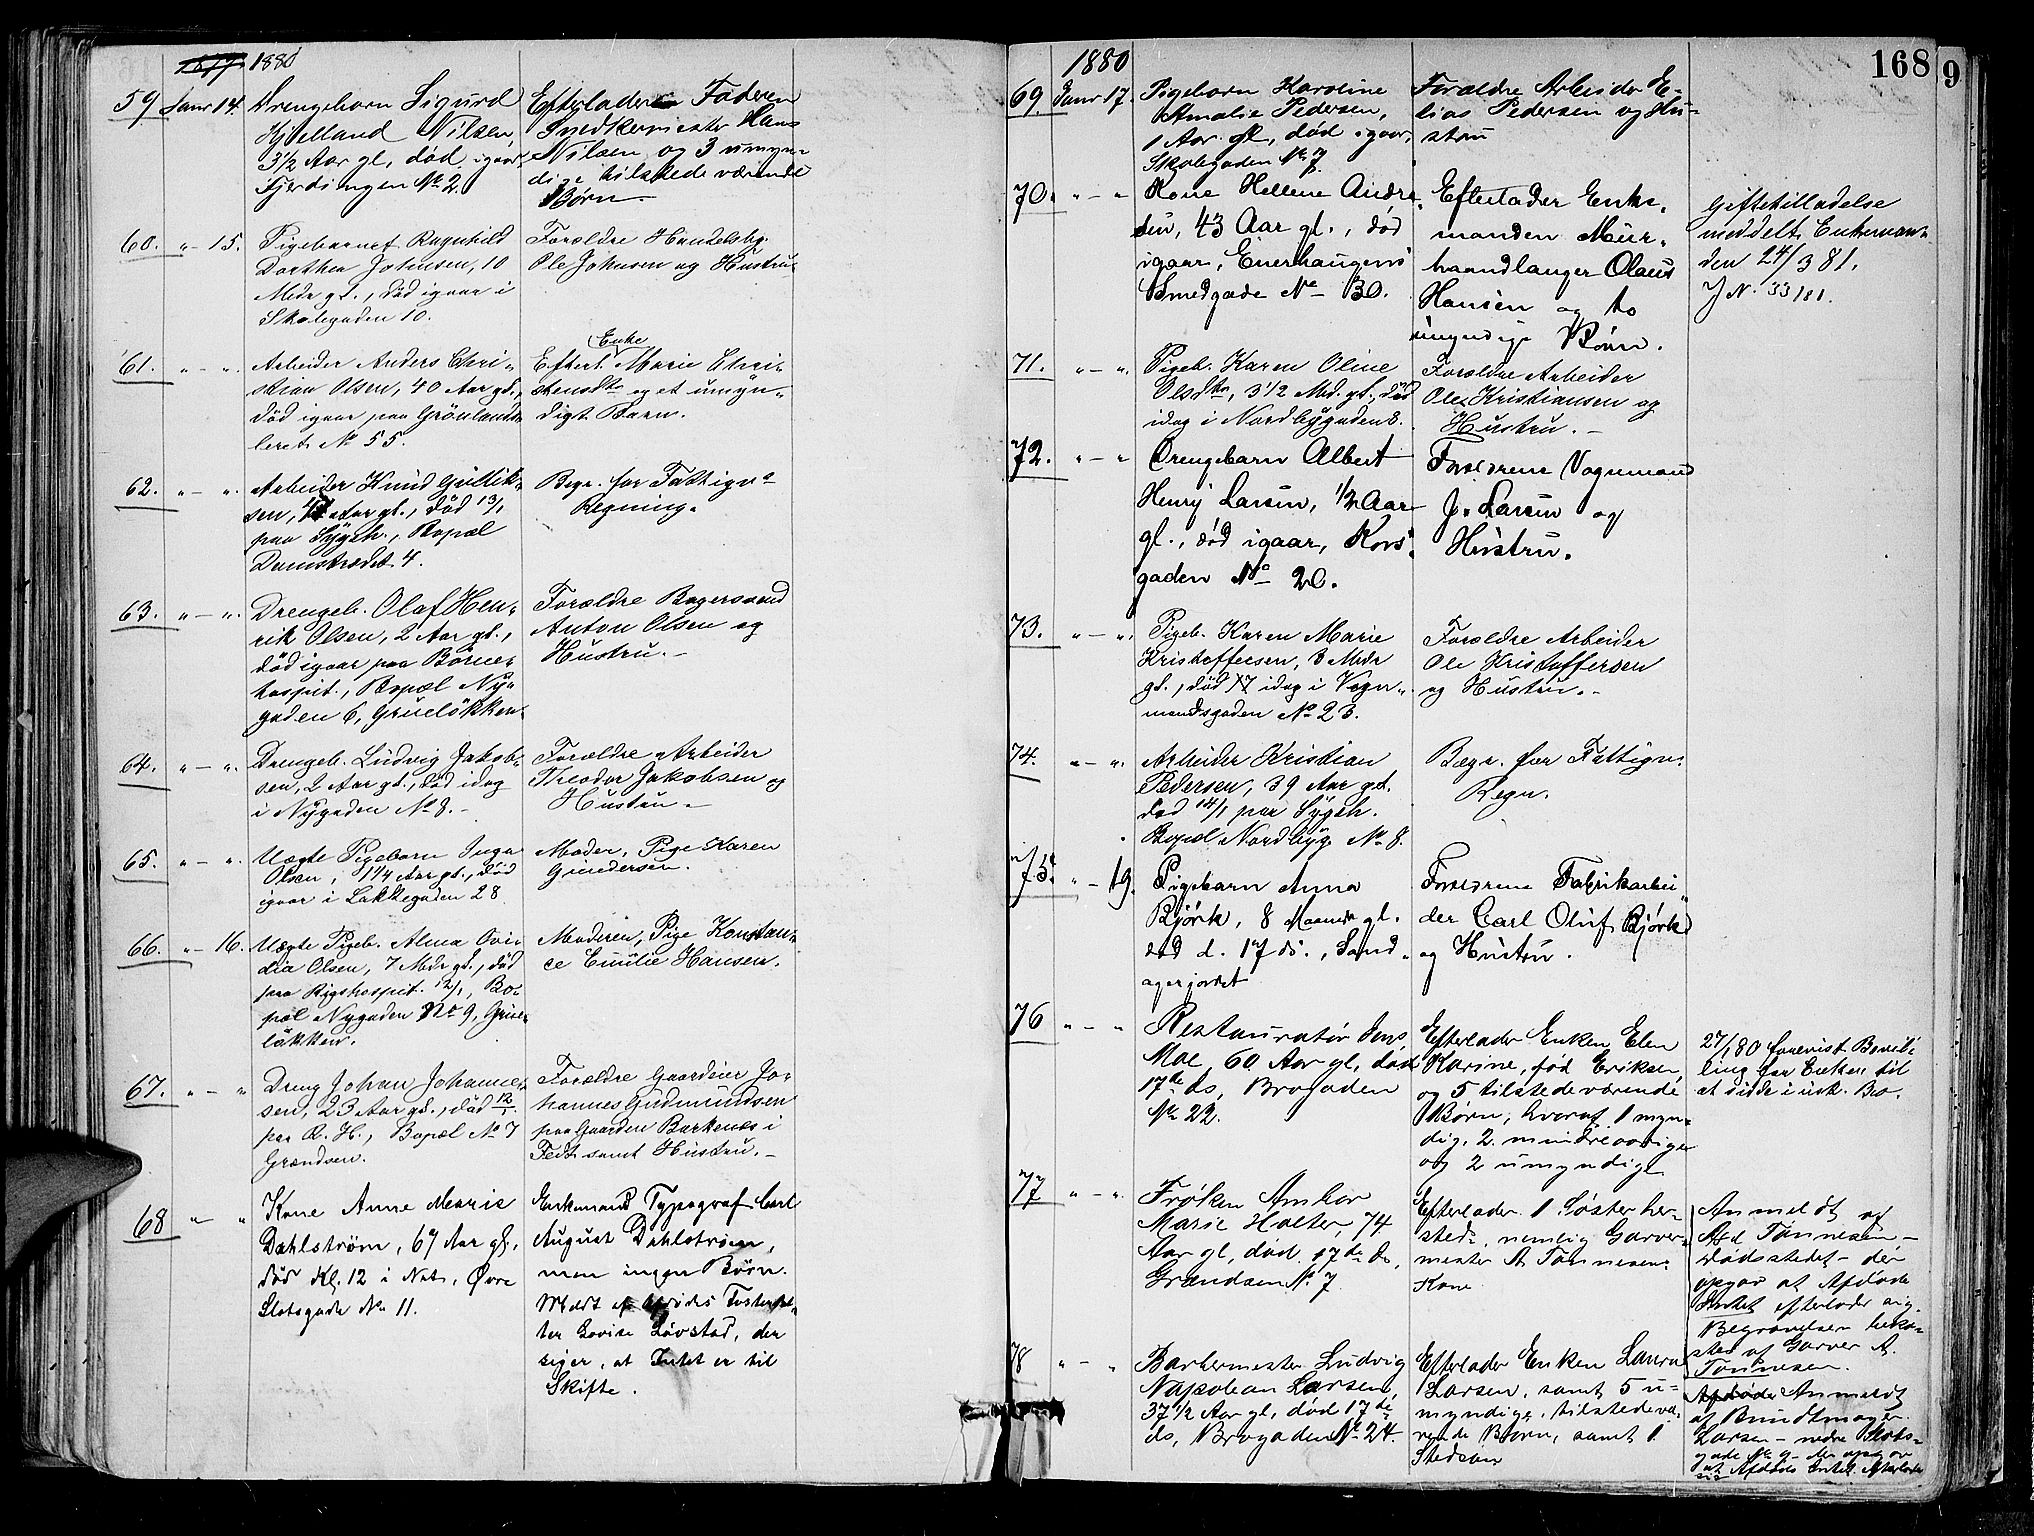 1880
59 Janr 14. Drengebarn Sigurd Efterlader Faderen
Hjelland Nilsen, Snedkermester Hans
3 1/2 Aar gl, død igaar, Nilsen og 3 umyn-
Fjerdingen No 2. dige tilstede værende
Børn
60. " - 15. Pigebarnet Ragnhild Forældre Handelsbg.
Dorthea Johnsen, 10 Ole Johnsen og Hustru
Mdr gl., død igaar i
Skolegaden 10.
Enke
61. " - " Arbeider Anders Chri- Efterl. Marie Chri-
stian Olsen, 40 Aar gl., stensdtr og et umyn-
død igaar paa Grönlands digt Barn.
leret No 55.
62. " - " Arbeider Knud Gullik- Begr. for Fattigv.
sen, Aar gl., død 13/1 Regning.
paa Sygeh., Bopæl
Damstrædet 4.
63. " - " Drengeb. Olaf Hen- Forældre Bagersvend
rik Olsen, 2 Aar gl., Anton Olsen og
død igaar paa Børne- Hustru.
hospit., Bopæl Ny-
gaden 6, Grueløkken
64. " - " Drengeb. Ludvig Jakob- Forældre Arbeider
sen, 2 Aar gl., død idag Theodor Jakobsen og
i Nygaden No 8. Hustru
65. " - " Uægte Pigebarn Inga Moder, Pige Karen
Olsen, 1 1/4 Aar gl., død Gundersen.
igaar i Lakkegaden 28
66. " - 16. Uægte Pigeb. Alma Ovi- Moderen, Pige Konstan-
dia Olsen, 7 Mdr gl., død ce Emilie Hansen.
paa Rigshospit. 12/1, Bo-
pæl Nygaden No 9, Grue-
løkken.
67. " - " Dreng Johan Johanne- Forældre Gaardeier Jo-
sen, 23 Aar gl., død 12/1 hannes Gudmundsen
paa R. H., Bopæl No 7 paa Gaarden Barkenæs i
Grændsen. samt Hustru.
68 " " Kone Anne Marie Enkemand Typograf Carl
Dahlstrøm, 67 Aar gl., August Dahlstrøm,
død Kl. 12 i Nat, Øvre men ingen Børn.
Slotsgade No 11. Meldt af Afdødes
Lovise Løvstad, der
siger, at Intet er til
Skifte.
168
9
1880
69. Janr 17. Pigebarn Karoline Forældre Arbeider E-
Amalie Pedersen, lias Pedersen og Hu-
1 Aar gl, død igaar, stru
Skolegaden No 7.
70. " - " Kone Hellene Andre- Efterlader Enke- Giftetilladelse
sen, 43 Aar gl., død manden Mur- meddelt Enkeman-
igaar, Enerhaugens haandlanger Olaus den 24/3 81.
Smedgade No 30. Hansen og to J N. 33/81.
umyndige Børn.
71. " - " Pigeb. Karen Oline Forældre Arbeider
Olsdtr, 3 1/2 Md. gl., død Ole Kristiansen og
idag i Nordbygaden 8. Hustru.
72. " - " Drengebarn Albert Forældrene Vognmand
Henry Larsen, 1/2 Aar J. Larsen og
gl., død igaar, Kors- Hustru.
gaden No 20.
73. " - " Pigeb. Karen Marie Forældre Arbeider
Kristoffersen, 3 Mdr Ole Kristoffersen
gl., død idag i Vogn- og Hustru.
mandsgaden No 23.
74. " - " Arbeider Kristian Begr. for Fattigv.
Pedersen, 39 Aar gl. Regn.
død 14/1 paa Sygeh.
Bopæl Nordbyg. No 8.
75. " - 19. Pigebarn Anna Forældrene Fabrikarbei-
Bjørk, 8 Maaneder gl. der Carl Oluf Bjørk
død d. 17 ds., Sand- og Hustru.
agerjordet
76 " - " Restauratør Jens Efterlader Enken Elen 27/1 80 forevist Bevil-
Moe, 60 Aar gl, død Karine, fød Eriksen, ling for Enken til
17de ds, Brogaden og 5 tilstedeværende at sidde i usk. Bo.
No 22. Børn, hvoraf 1 myn-
dig, 2 mindreaarige
og 2 umyndige
77 " - " Frøken Amber Efterlader 1 Søster her- Anmeldt af
Marie Holter, 74 sted, nemlig Garver- Tønnesen -
Aar gl, død 17de ds, mester A Tønnesens Dødsstedet - der
Grændsen No 7 Kone opgav at Afdøde
Intet efterlader sig.
Begravelsen beko-
stes af Garver A.
Tønnesen.
78 " - " Barbermester Ludvig Efterlader Enken Laura Anmeldt
Napoleon Larsen, Larsen, samt 5 u- af Bundtmager
37 1/2 Aar gl, død 17de myndige, tilstedevæ- Larsen - nedre Slots-
ds, Brogaden No 24. rende Børn, samt 1 gade No 9 - der opgav
Stedsøn at Afdøde Intet efterlader